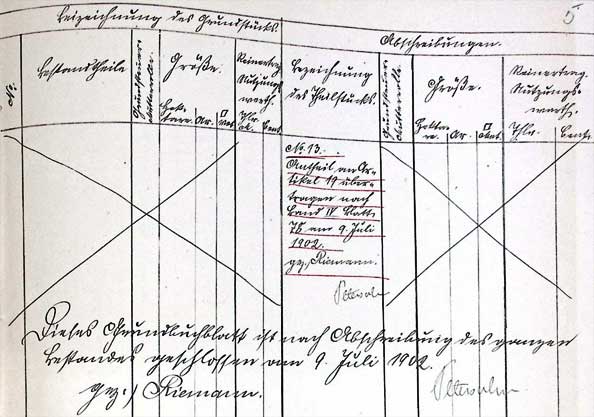 5
Bezeichnung des Grundstücks.
Abschreibungen.
No.
Bestandtheile
Grundsteuer-
mutterrolle.
Größe.
Hek-
tare.
Ar.
□
Met.
Reinertrag
Nutzungs-
werth.
Thlr.
Cent.
Bezeichnung
des Theilstücks.
Grundsteuer-
mutterrolle.
Größe.
Hekta-
re.
Ar.
□
Met.
Reinertrag.
Nutzungs-
werth.
Thlr.
Cent.
No. 13.
Antheil an Ar-
tikel 19 über-
tragen nach
Band IV Blatt
78 am 9. Juli
1902.
gez.) Riemann.
Dieses Grundbuchblatt ist nach Abschreibung des ganzen
Bestandes geschlossen am 9. Juli 1902.
gez.) Riemann.